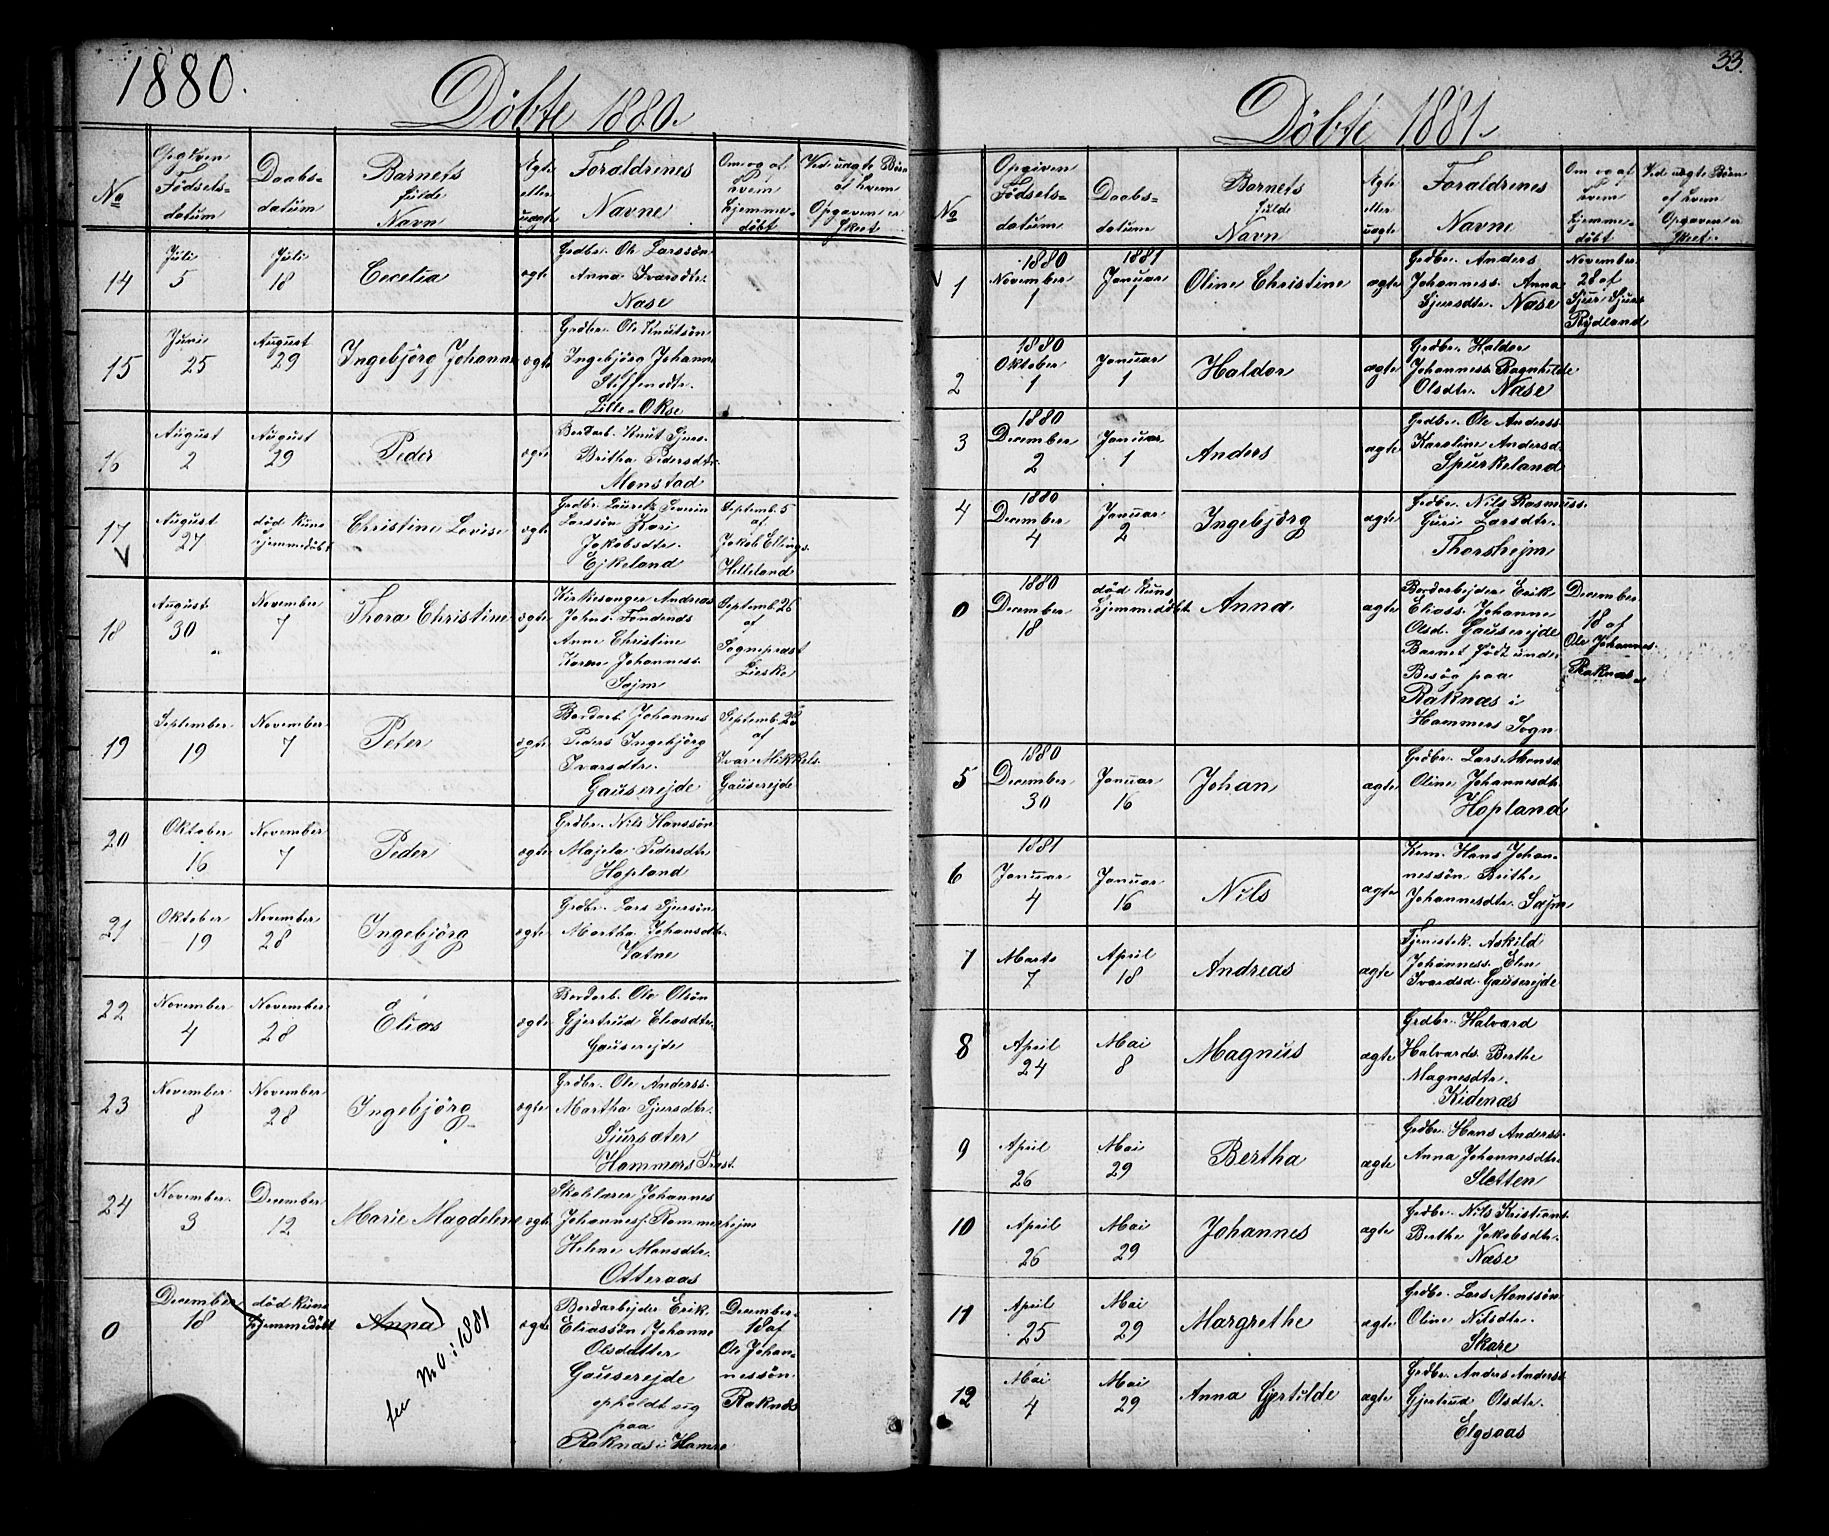 1880.
Döbte 1880.
No
Opgiven
Födsels-
datum
Daabs-
datum
Barnets
fulde
Navn
Ægte
eller
uægte
Foraldrenes
Navne
Om og af
hvem
hjemme-
döbt
Ved uægte Börn
af hvem
Opgaven er
skeet
14
Juli
5
Juli
18
Cecelia
ægte
Grdbr. Ole Larssön
Anna Ivarsdtr.
Nase
15
Juni
25
August
29
Ingebjörg Johanne
ægte
Grdbr. Ole Knutsön
Ingebjörg Johanne
Steffensdtr.
Lille-Okse
16
August
2
August
29
Peder
ægte
Bordarb. Knut Sjurs.
Britha Pedersdtr.
Monstad
17
August
27
död kuns
hjemmedöbt
Christine Lovise
ægte
Grdbr. Lauretz Severin
Larssön Kari
Jakobsdtr.
Ejkeland
Septemb. 5
af
Jakob Ellings.
Hilleland
18
August
30
November
7
Thora Christine
ægte
Kirkesanger Andreas
Johns. Fondenæs
Anne Christine
Karen Johanness.
Sajm
Septemb. 26
af
Sogneprest
Lieske
19
September
19
November
7
Peter
ægte
Bordarb. Johannes
Peders Ingebjörg
Ivarsdtr.
Gauserejde
Septemb. 25
af
Ivar Mikkels.
Gauserejde
20
Oktober
16
November
7
Peder
ægte
Grdbr. Nils Hanssön
Majela Pedersdtr.
Hopland
21
Oktober
19
November
28
Ingebjörg
ægte
Grdbr. Lars Sjursön
Martha Johansdtr.
Vatne
22
November
4
November
28
Elias
ægte
Bordarb. Ole Olsön
Gjertrud Eliasdtr.
Gauserejde
23
November
8
November
28
Ingebjörg
ægte
Grdbr. Ole Anderss.
Martha Sjursdtr.
Sjursæter
Hammers Præst.
24
November
3
December
12
Marie Magdelene
ægte
Skolelærer Johannes
Johanness. Rommerhejm
Helene Monsdtr.
Otteraas
0
December
18
död kuns
hjemmedöbt
Anna
see No 0 i 1881
ægte
Bordarbejder Erik
Eliassön Johanne
Olsdatter
Gauserejde
opholdt sig
paa
Raknæs i Hamre
December
18 af
Ole Johan-
nessön
Raknæs
33.
Döbte 1881.
No
Opgiven
Födsels-
datum
Daabs-
datum
Barnets
fulde
Navn
Ægte
eller
uægte
Foraldrenes
Navne
Om og af
hvem
hjemme-
döbt
Ved uægte Börn
af hvem
Opgaven er
skeet.
1
1880
November
1
1881
Januar
1
Oline Christine
ægte
Grdbr. Anders
Johanness. Anna
Sjursdtr. Nase
November
28 af
Sjur Sjurs
Rydland
2
1880
Oktober
1
Januar
1
Haldor
ægte
Grdbr. Haldor
Johanness. Ragnhilde
Olsdtr. Nase
3
1880
December
2
Januar
1
Anders
ægte
Grdbr. Ole Anderss.
Karoline Andersd.
Spurkeland
4
1880
December
4
Januar
2
Ingebjörg
ægte
Grdbr. Nils Rasmuss.
Guri Larsdtr.
Thorshejm
0
1880
December
18
död kuns
hjemmedöbt
Anna
ægte
Bordarbejder Erik
Eliass. Johanne
Olsd. Gauserejde
Barnet födt under
Besög paa
Raknæs i
Hammers Sogn
December
18 af
Ole Johannes.
Raknæs
5
1880
December
30
Januar
16
Johan
ægte
Grdbr. Lars Monss.
Oline Johannesdtr.
Hopland
6
1881
Januar
4
Januar
16
Nils
ægte
Hans Johan-
nessön Brithe
Johannesdtr. Sajm
7
Marts
7
April
18
Andreas
ægte
Tjenestek. Askild
Johanness. Elen
Ivarsd. Gauserejde
8
April
24
Mai
8
Magnus
ægte
Grdbr. Halvard
Halvards. Berthe
Magnesdtr.
Kidenæs
9
April
26
Mai
29
Bertha
ægte
Grdbr. Hans Anderss.
Anna Johannesdtr.
Sletten
10
April
26
Mai
29
Johannes
ægte
Grdbr. Nils Kristians.
Berthe Jakobsdtr.
Nase
11
April
25
Mai
29
Margrethe
ægte
Grdbr. Lars Monssön
Oline Nilsdtr.
Skare
12
Mai
4
Mai
29
Anna Gjertilde
ægte
Grdbr. Anders Anderss.
Gjertrud Olsdtr.
Elgsaas